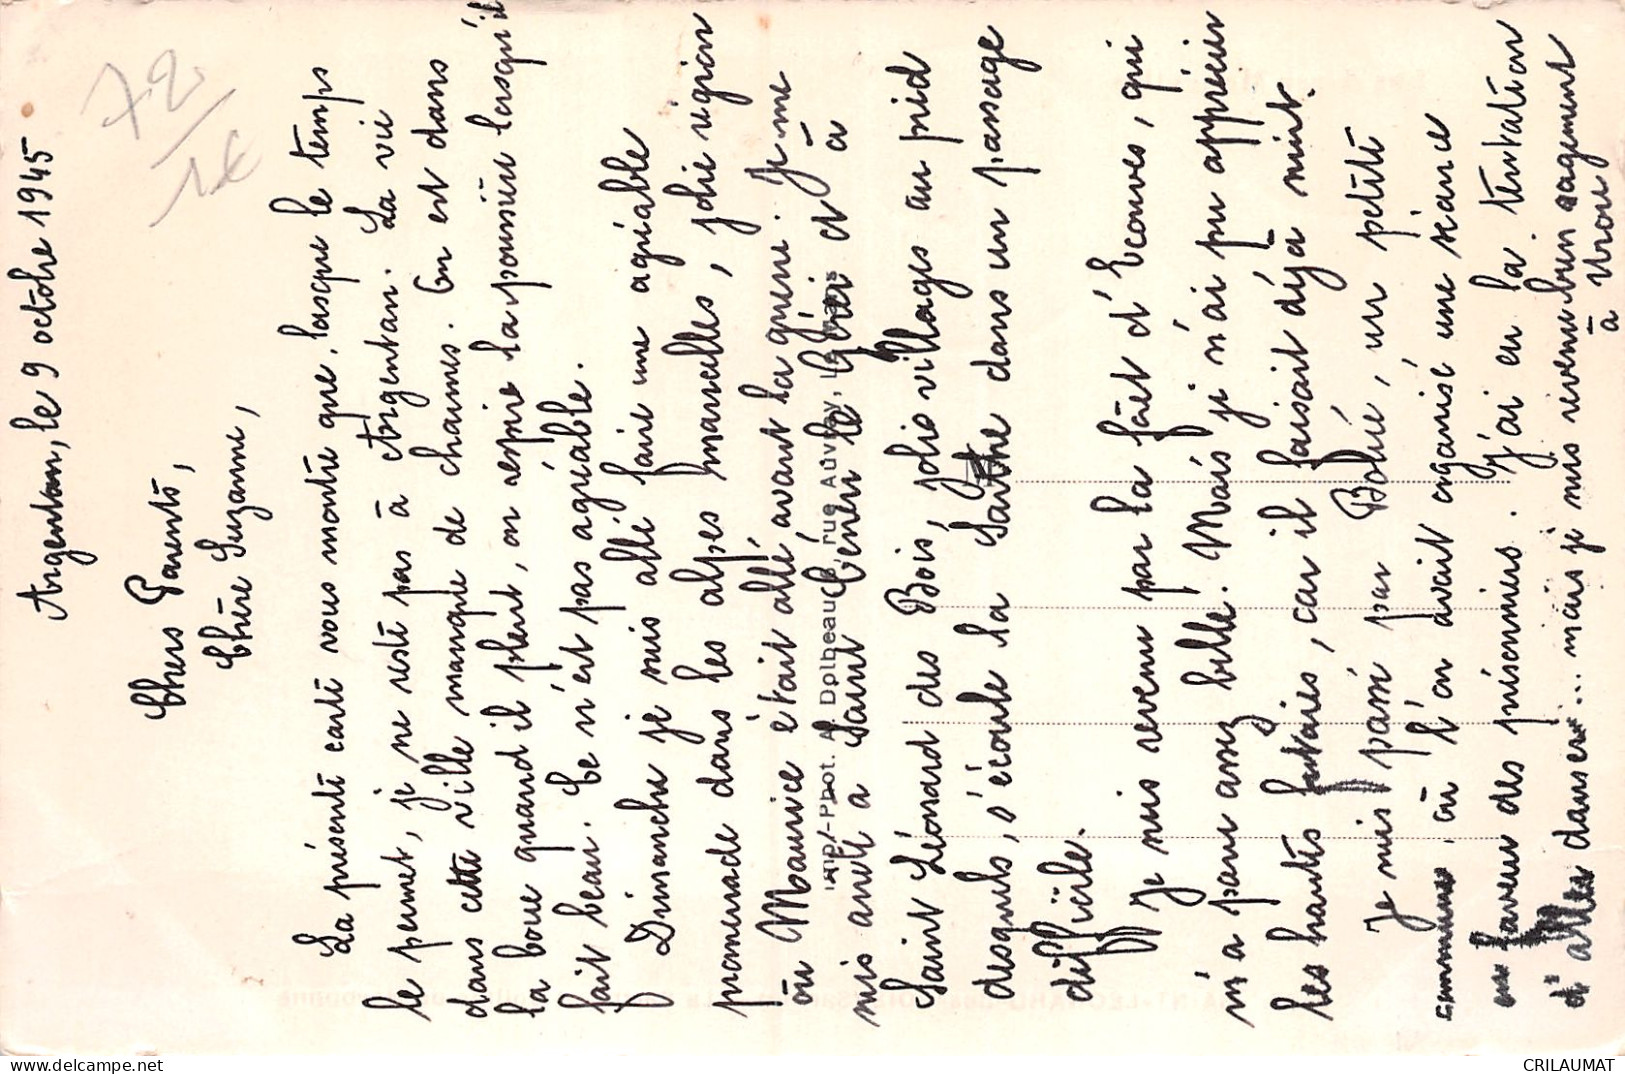 Argentan, le 9 octobre 1945
72
1€
Chers Parents,
Chère Suzanne,
La présente carte vous montre que, lorsque le temps
le permet, je ne reste pas à Argentan. La vie
dans cette ville manque de charmes. On est dans
la boue quand il pleut, on respire la poussière lorsqu'il
fait beau. Ce n'est pas agréable.
Dimanche je suis allé faire une agréable
promenade dans les alpes mancelles, jolie région
où Maurice était allé avant la guerre. Je me
suis arrêté à Saint Céneri le Gérei et à
Saint Léonard des Bois, jolis villages au pied
desquels, s'écoule la Sarthe dans un passage
difficile.
Je suis revenu par la forêt d'Ecouves, qui
m'a paru assez belle. Mais je n'ai pu apprécier
les hautes futaies, car il faisait déjà nuit.
Je suis passé par Boucé, un petite
commune où l'on avait organisé une séance
en faveur des prisonniers. J'ai eu la tentation
d'aller danser... mais je suis revenu bien sagement
à Urou
Imp.-Phot. A. Dolbeau, rue Auvray, Le Mans
CRILAUMAT